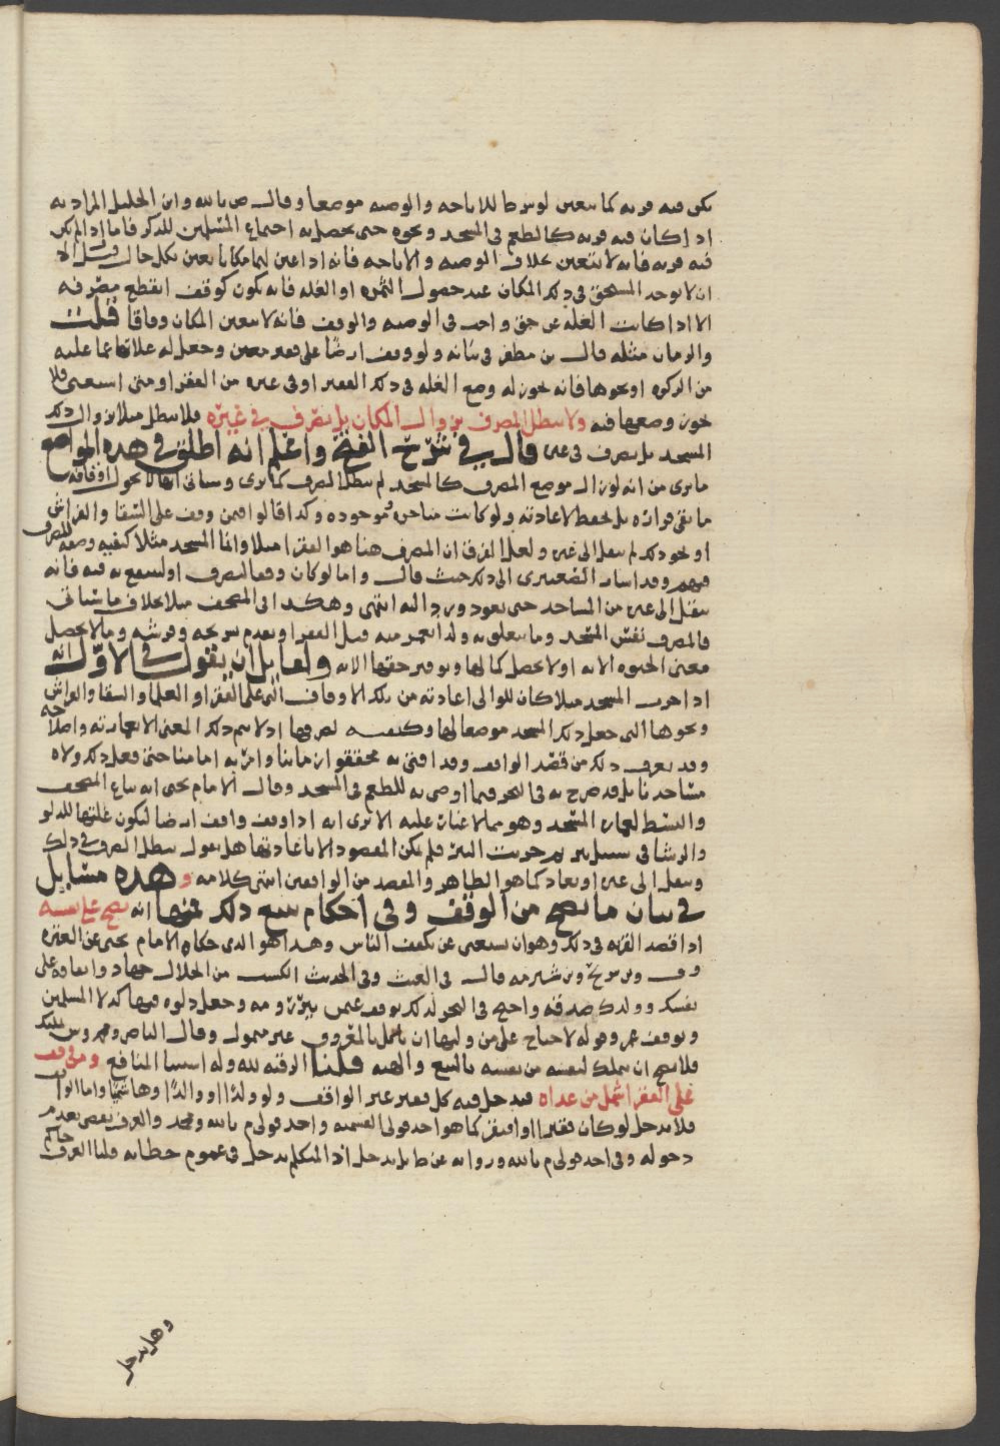 يكن فيه قربه كما يتعين لو شرطا للاباحه والوصيه موضعا وقال ص بالله وابن الخليل المراد به
اذا كان فيه قربه كالطعم في المسجد ونحوه حتى يحصل به اجتماع المسلمين للذكر فاما اذا لم يكن
فيه قربه فانه لا يتعين بخلاف الوصيه والاباحه فانه اذا عين لهما مكانا تعين بكل حال
ان لا يوجد المستحق في ذلك المكان عند حصول الثمره او الغله فانه يكون كوقف انقطع مصرفه
الا اذا كانت الغله عن حق واجب في الوصيه والوقف فانه لا يتعين المكان وفاقا قلت
والزمان مثله قال بن مظفر في بيانه ولو وقف ارضا على فقير معين وجعل له غلاتها عما عليه
من الزكوه او نحوها فانه يجوز له وضع الغله في ذلك الفقير او في غيره من الفقرا ومتى استغنى فلا
يجوز وضعها فيه ولا يبطل المصرف بزوال المكان بل يصرف في غيره فلا يبطل مثلا بزوال ذلك
المسجد بل يصرف في غيره قال في شرح الفتح واعلم انه اطلق في هذه المواضع
ما ترى من انه لو زال موضع المصرف كالمسجد لم يبطل المصرف كما ترى وسياتي انها لا تحول اوقافه
ما بقي قراره بل يحفظ لاعادته ولو كانت مناحره موجوده وكذا قالوا فيمن وقف على السقا والفراش
او نحو ذلك لم ينقل الى غيره ولعل الفرق ان المصرف هنا هو الفقرا مثلا وانما المسجد مثلا كيفيه وصفه للصرف
فيهم وقد اشار الصعيتري الى ذلك حيث قال واما لو كان وقفا ليصرف او ليتنفع به فيه فانه
ينقل الى غيره من المساجد حتى يعود ويرد اليه انتهى وهكذا في المصحف مثلا بخلاف ما سياتي
فالمصرف نفس المسجد وما يتعلق به ولذا يعمر منه قبل الفقرا ويقدم تسريجه وفرشه وما لا يحصل
معنى الحيوه الا به او لا يحصل كمالها وتوفير حقها الا به ولقايل ان يقول في الاول انه
اذا خرب المسجد مثلا كان للوالي اعادته من تلك الاوقاف التي على الفقرا والعلما والسقا والفراش
ونحوها التي جعل ذلك المسجد موضعا لها وكيفيه لصرفها اذ لا يتم ذلك المعنى الا بعمارته واصلاحه
وقد يعرف ذلك من قصد الواقف وقد افتى به محققوا زماننا وامر به امامنا حتى فعل ذلك ولاه
مشاهدنا بل قد صرح به في البحر فيما اوصي به للطعم في المسجد وقال الامام يحيى انه يباع المصحف
والبسط لعماره المسجد وهو مما لا غبار عليه الا ترى انه اذا وقف واقف ارضا لتكون غلتها للدلو
والرشا في سبيل بير ثم خربت البئر فلم يكن المقصود الا باعادتها هل نقول يبطل الصرف في ذلك
وينقل الى غيره او يعاد كما هو الظاهر والمقصد من الواقفين انتهى كلامه وهذه مسايل
في بيان ما يصح من الوقف وفي احكام تتبع ذلك فمنها انه يصح على نفسه
اذا قصد القربه في ذلك وهو ان يستغني عن تكفف الناس وهذا هو الذي حكاه الامام يحيى عن العتره
و ف وبن سريج وبن شبرمه قال في الغيث وفي الحديث الكسب من الحلال جهاد وانفاقه على
نفسك وولدك صدقه واحتج في البحر لذلك بوقف عثمن بير رومه وجعل دلوه فيها كدلا المسلمين
وبوقف عمر وقوله لا جناح على من وليها ان ياكل بالمعروف غير متمول وقال الناصر ومحمد وش لا يملك
فلا يصح ان يملك لنفسه من نفسه بالبيع والهبه قلنا الرقبه لله وله استثنا المنافع ومن وقف
على الفقرا شمل من عداه فيدخل فيه كل فقير غير الواقف ولو ولدا او والدا وهاشميا واما الواقف
فلا يدخل لو كان فقيرا او افتقر كما هو احد قولي القسميه واحد قولي م بالله ومحمد والعرف يقضي بعدم
دخوله وفي احد قولي م بالله وروايه عن ط بل يدخل اذ المتكلم يدخل في عموم خطابه قلنا العرف حاكم
وهل يدخل